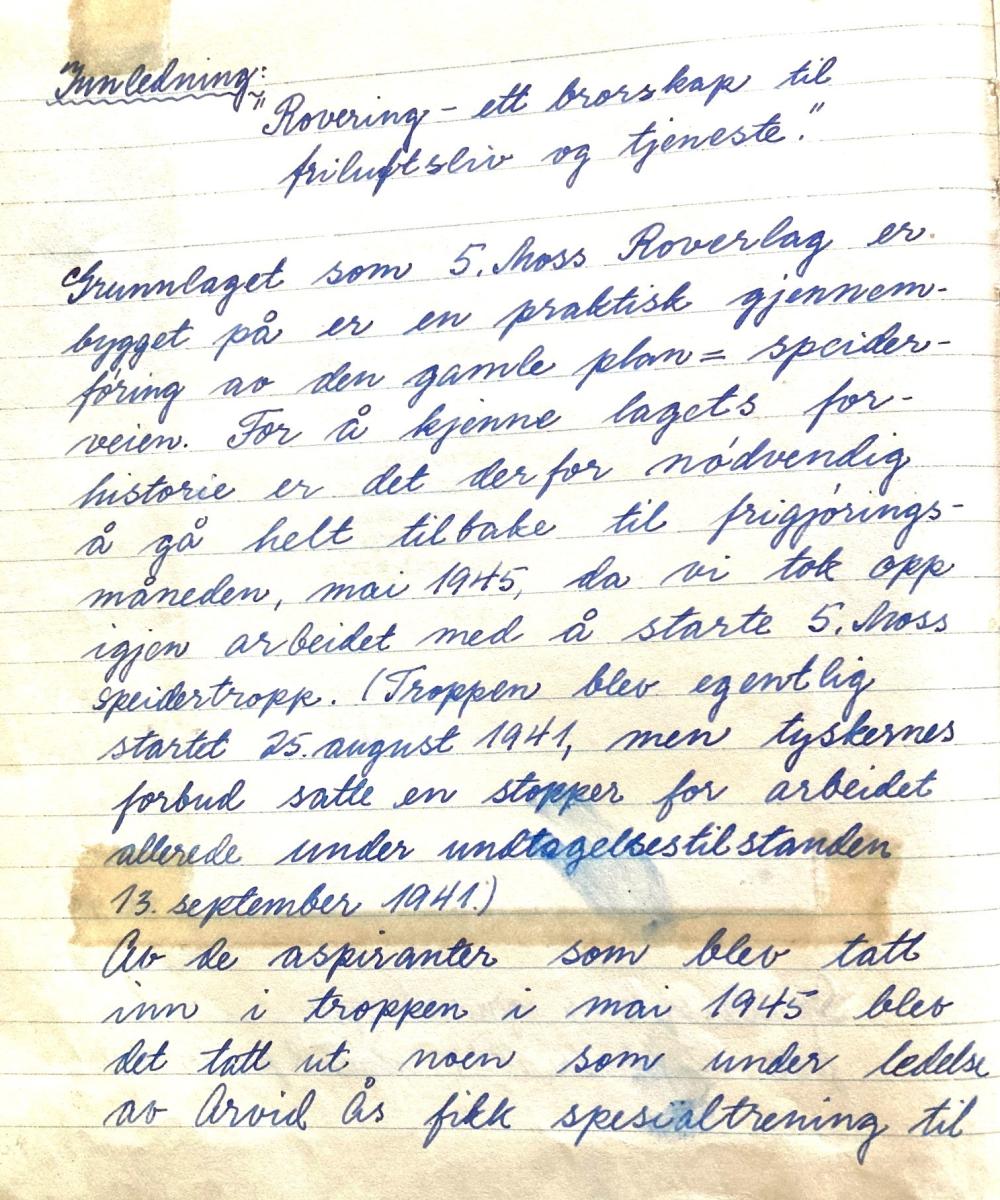 Innledning:
"Rovering - ett brorskap til
friluftsliv og tjeneste."
Grunnlaget som 5. Moss Roverlag er
bygget på er en praktisk gjennem-
føring av den gamle plan = speider-
veien. For å kjenne lagets for-
historie er det derfor nødvendig
å gå helt tilbake til frigjørings-
måneden, mai 1945, da vi tok opp
igjen arbeidet med å starte 5. Moss
speidertropp. (Troppen blev egentlig
startet 25. august 1941, men tyskernes
forbud satte en stopper for arbeidet
allerede under undtagelsestilstanden
13. september 1941.)
Av de aspiranter som blev tatt
inn i troppen i mai 1945 blev
det tatt ut noen som under ledelse
av Arvid Ås fikk spesialtrening til